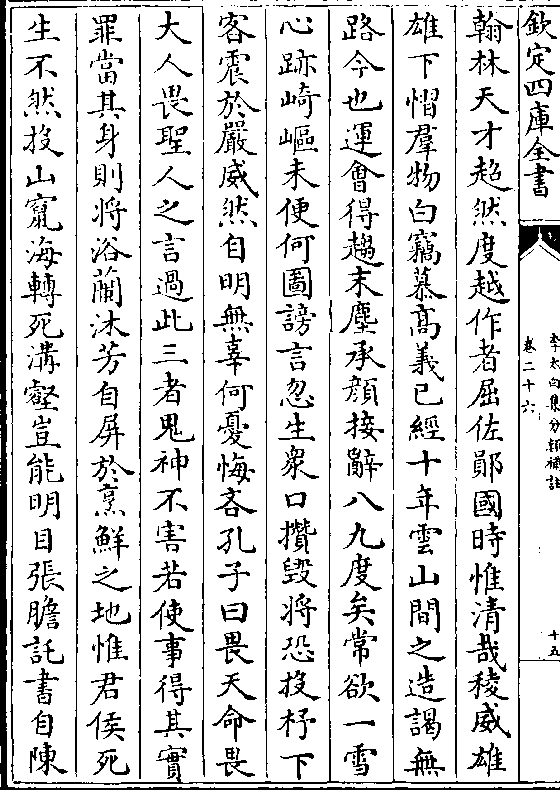 欽定四庫全書
李太白集分類補註
卷二十六
十五
翰林天才超然度越作者屈佐鄖國時惟清哉稜威雄
雄下慴羣物白竊慕高義已經十年雲山間之造謁無
路今也運會得趨末塵承顔接辭八九度矣常欲一雪
心跡崎嶇未便何圖謗言忽生衆口攢毀將恐投杼下
客震於嚴威然自明無辜何憂悔吝孔子曰畏天命畏
大人畏聖人之言過此三者鬼神不害若使事得其實
罪當其身則將浴蘭沐芳自屏於烹鮮之地惟君侯死
生不然投山竄海轉死溝壑豈能明目張膽託書自陳